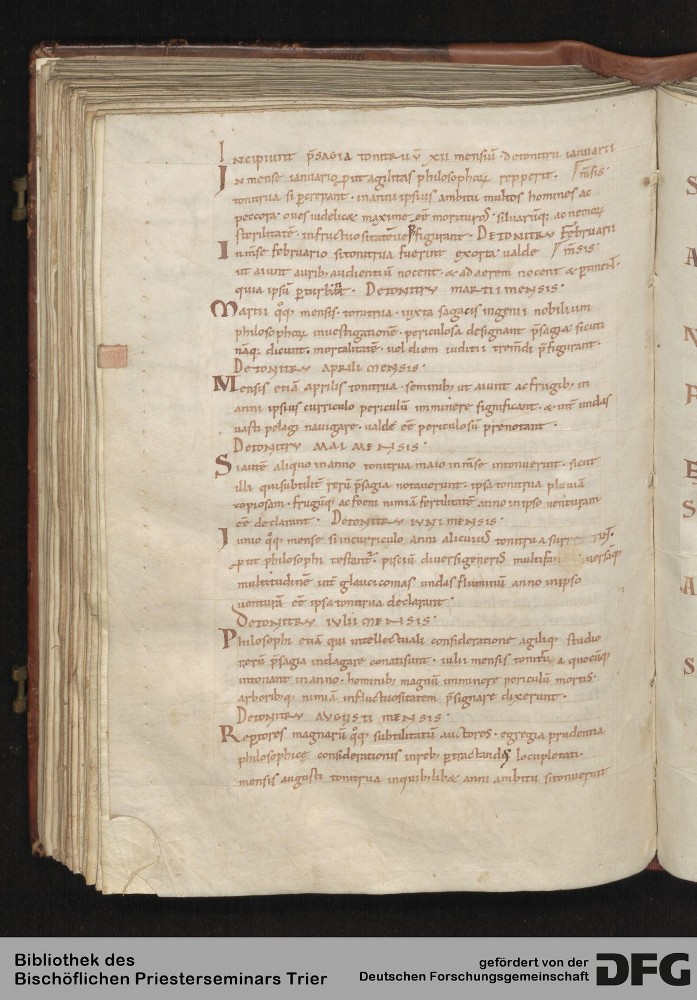 Incipiunt p̄sagia tonitruū xii mensiū · de tonitru ianuarii
In mense ianuario · put agilitas philosophoꝝ repperit · mīsis ·
tonitrua si ꝑcrepant · in anni ipsius ambitu multos homines ac
peccora · oues uidelic& maxime · eē morituros · siluarūq; ac nemoꝝ
sterilitatē · infructuositatēue p̄figurant · De tonitru Februarii
In mīse februario si tonitrua fuerint exorta · ualde mīsis ·
ut aiunt aurib; audientiū nocent · & ad aerem nocent &
quia ipsū ꝑturbant · De tonitru martii mensis ·
Martii qq; mensis · tonitrua · iuxta sagacis ingenii nobilium
philosophoꝝ inuestigationē · periculosa designant p̄sagia · sicuti
nāq; dicunt · mortalitatē · uel diem iuditii trem̄di p̄figurant ·
De tonitru aprili mensis ·
Mensis etiā aprilis tonitrua · seminib; ut aiunt ac frugib; in
anni ipsius curriculo periculū imminere significant · & int̄ undas
uasti pelagi nauigare · ualde eē periculosū prenotant ·
De tonitru mai mensis ·
Si autē aliquo in anno tonitrua maio in mīse intonuerint · sicut
illi qui subtilit̄ rerū p̄sagia notauerunt · ipsa tonitrua pluuiā
copiosam · frugūq; ac foeni nimiā fertilitatē anno in ipso uenturam
eē declarant · De tonitru iuni mensis ·
Iunio qq; mense si in curriculo anni alicuius tonitrua
put philosophi testant̄ · pisciū diuersi generis
multitudinē int̄ glauci comas undas fluminū anno in ipso
uenturā eē ipsa tonitrua declarant ·
De tonitru iulii mensis ·
Philosophi etiā qui intellectuali consideratione agiliq; studio
rerū p̄sagia indagare conati sunt · iulii mensis tonitrua quocūq;
intonant in anno · hominib; magnū imminere periculū mortis ·
arboribq; nimiā infructuositatem p̄signare dixerunt ·
De tonitru augusti mensis ·
Reptores magnarū qq; subtilitatū auctores · egregia prudentia
philosophicę considerationis in reb; ꝑtractandis locupletati ·
mensis augusti tonitrua in quibilib& anni ambitu si tonuerint
Bibliothek des
Bischöflichen Priesterseminars Trier
gefördert von der
Deutschen Forschungsgemeinschaft
DFG